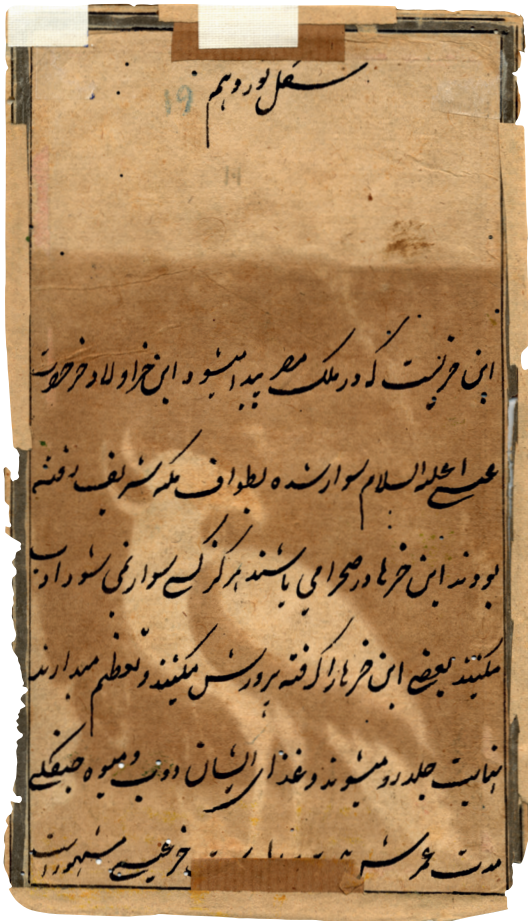 شکل نوزدهم
19
این خریست که در ملک مصر پیدا میشود این خر اولاد خر حضرت
عیسے علیه السلام سوار شده بطواف مکه شریف رفته
بودند این خرها در صحرا می باشند هرگز کسے سوار نمی شود ادب
میکنند بعضے این خرها را گرفته پرورش میکنند و تعظیم میدارند
نهایت جلد رو میشوند و غذای ایشان دوب و میوه جنگلے
مدت عمرش خر عیسے مشهور است